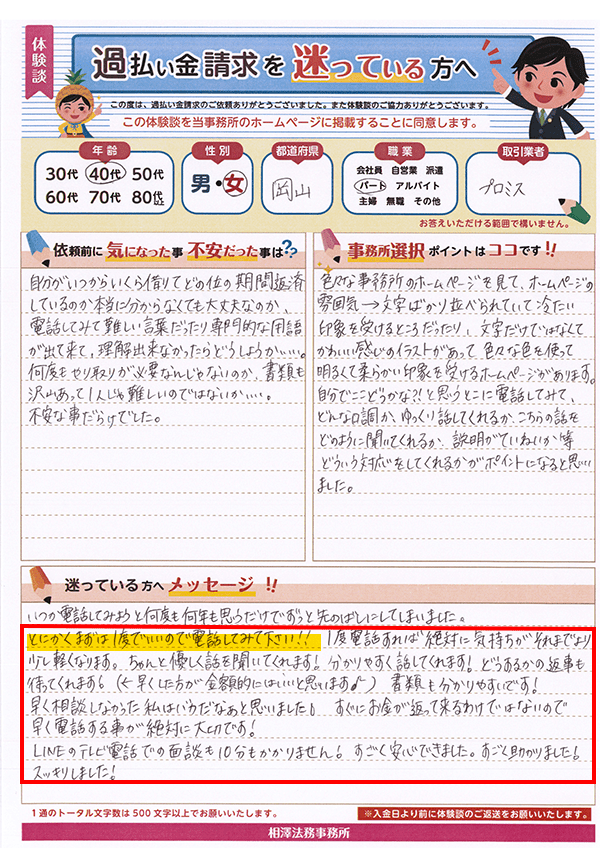 体験談
過払い金請求を迷っている方へ
この度は、過払い金請求のご依頼ありがとうございました。また体験談のご協力ありがとうございます。
この体験談を当事務所のホームページに掲載することに同意します。
年齢
30代 40代 50代
60代 70代 80代
性別
男・女
都道府県
岡山
職業
会社員 自営業 派遣
パート アルバイト
主婦 無職 その他
取引業者
プロミス
お答えいただける範囲で構いません。
依頼前に気になった事 不安だった事は??
自分がいつからいくら借りてどの位の期間返済
しているのか本当に分からなくても大丈夫なのか、
電話してみて難しい言葉だったり専門的な用語
が出て来て、理解出来なかったらどうしようかい…。
何度もやり取りが必要なんじゃないのか、書類も
沢山あって1人じゃ難しいのではないか…。
不安な事だらけでした。
事務所選択ポイントはココです!!
色々な事務所のホームページを見て、ホームページの
雰囲気→文字ばかり並べられていて冷たい
印象を受けるところだったり、文字だけではなくて
かわいい感じのイラストがあって色々な色を使って
明るくて柔らかい印象を受けるホームページがあります。
自分でここどうかな?!と思うとこに電話してみて、
どんな口調か、ゆっくり話してくれるか、こちらの話を
どのように聞いてくれるか、説明がていねいか等
どういう対応をしてくれるかがポイントになると思い
ました。
迷っている方へ メッセージ!!
いつか電話してみようと何度も何年も思うだけでずっと先のばしにしてしまいました。
とにかくまずは1度でいいので電話してみて下さい!! 1度電話すれば絶対に気持ちがそれまでより
少し軽くなります。ちゃんと優しく話を聞いてくれます!分かりやすく話してくれます!どうするかの返事も
待ってくれます!(←早くした方が金額的にはいいと思います♪)書類も分かりやすいです!
早く相談しなかった私はバカだなぁと思いました!すぐにお金が返って来るわけではないので
早く電話する事が絶対に大切です!
LINEのテレビ電話での面談も10分もかかりません!すごく安心できました。すごく助かりました!
スッキリしました!
1通のトータル文字数は500文字以上でお願いいたします。
※入金日より前に体験談のご返送をお願いいたします。
相澤法務事務所